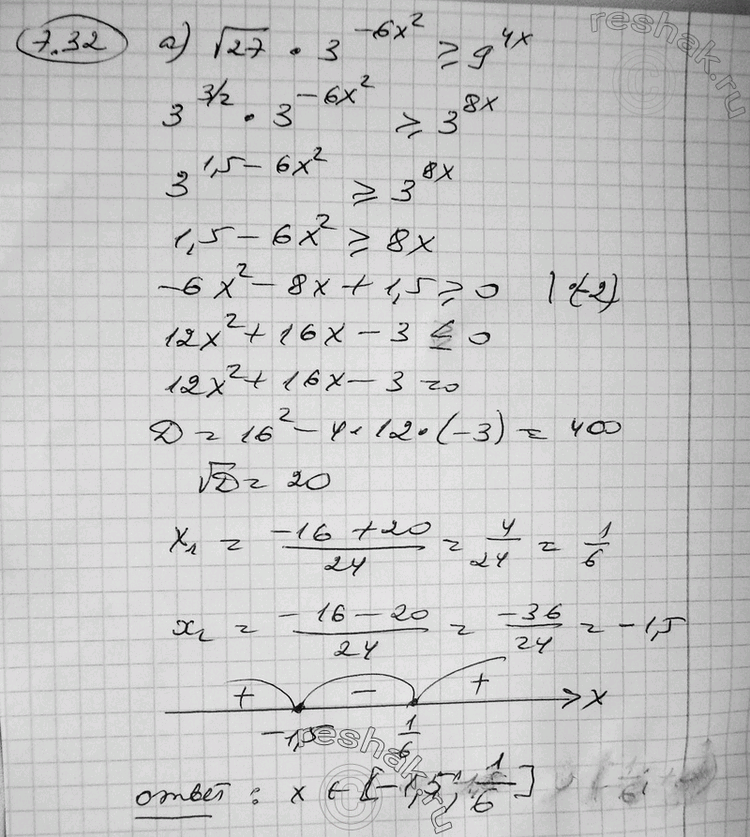 7.32 а) √27 · 3^(-6x²) ≥ 9^(4x)
3^(3/2) · 3^(-6x²) ≥ 3^(8x)
3^(1,5-6x²) ≥ 3^(8x)
1,5 - 6x² ≥ 8x
-6x² - 8x + 1,5 ≥ 0 | ·(-2)
12x² + 16x - 3 ≤ 0
12x² + 16x - 3 = 0
D = 16² - 4 · 12 · (-3) = 400
√D = 20
x₁ = (-16 + 20)/24 = 4/24 = 1/6
x₂ = (-16 - 20)/24 = -36/24 = -1,5
+ - + x
-1,5 1/6
ответ: x ∈ [-1,5; 1/6]
reshak.ru
reshak.ru